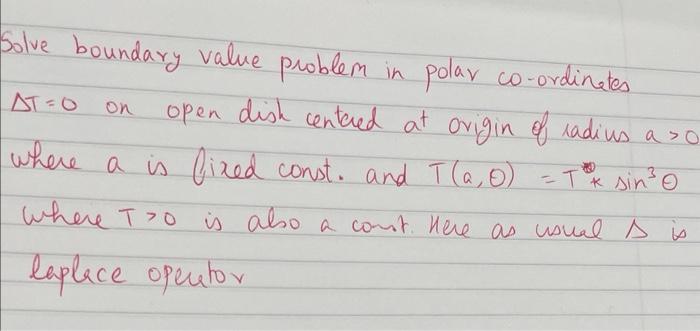 Solve boundary value problem in polar co-ordinates
ΔT=0 on open disk centered at origin of radius a>0
where a is fixed const. and T(a,θ) = T* sin³θ
where T>0 is also a const. Here as usual Δ is
laplace operator